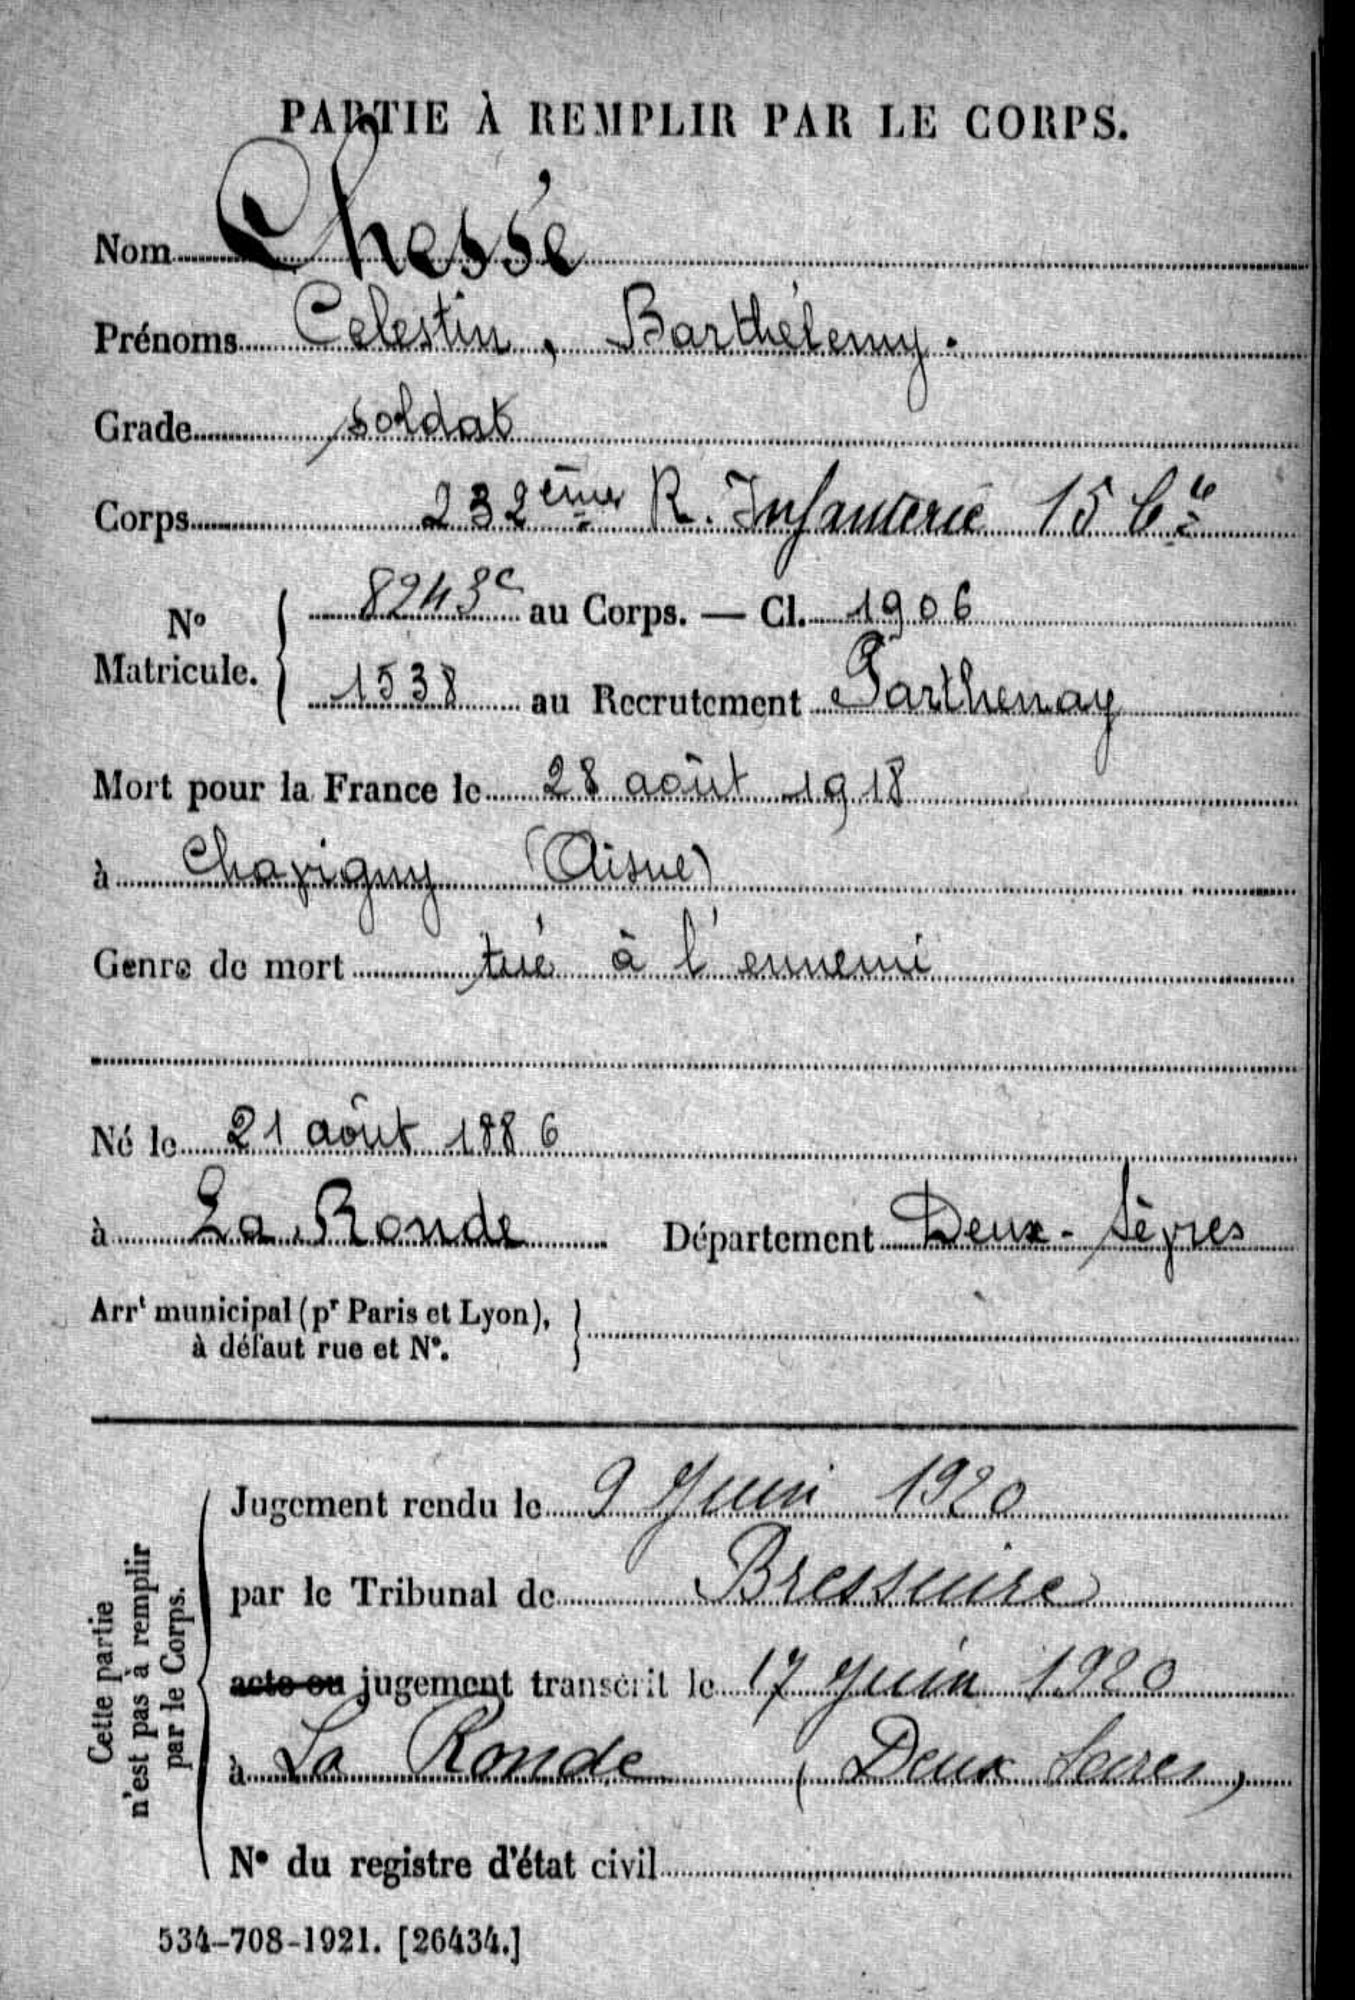 PARTIE À REMPLIR PAR LE CORPS.
Nom Chessé
Prénoms Célestin, Barthélemy.
Grade soldat
Corps 232ème R. Infanterie 15 Cie
No Matricule. { 8243c au Corps. — Cl. 1906
1538 au Recrutement Parthenay
Mort pour la France le 28 août 1918
à Chavigny (Aisne)
Genre de mort tué à l'ennemi
Né le 21 août 1886
à La Ronde Département Deux-Sèvres
Arrt municipal (pr Paris et Lyon), }
à défaut rue et N°.
Cette partie
n'est pas à remplir
par le Corps.
Jugement rendu le 9 Juin 1920
par le Tribunal de Bressuire
acte ou jugement transcrit le 17 Juin 1920
à La Ronde (Deux Sèvres)
N° du registre d'état civil
534-708-1921. [26434.]